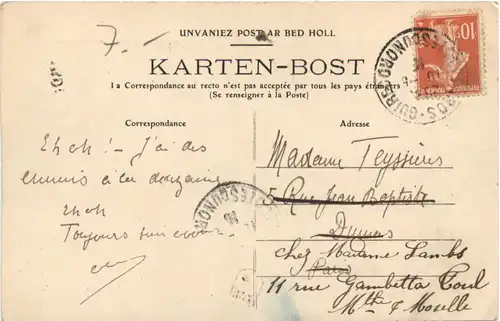 7.-
UNVANIEZ POST AR BED HOLL
KARTEN-BOST
La Correspondance au recto n'est pas acceptée par tous les pays étrangers
(Se renseigner à la Poste)
Correspondance
Adresse
Eh oh! - J'ai des
ennuis à la douzaine
Eh oh
Toujours
Madame Teyssières
5 Rue Jean Baptiste
Dumas
chez Madame Lambs
Paris
11 rue Gambetta Toul
Mthe & Moselle
10